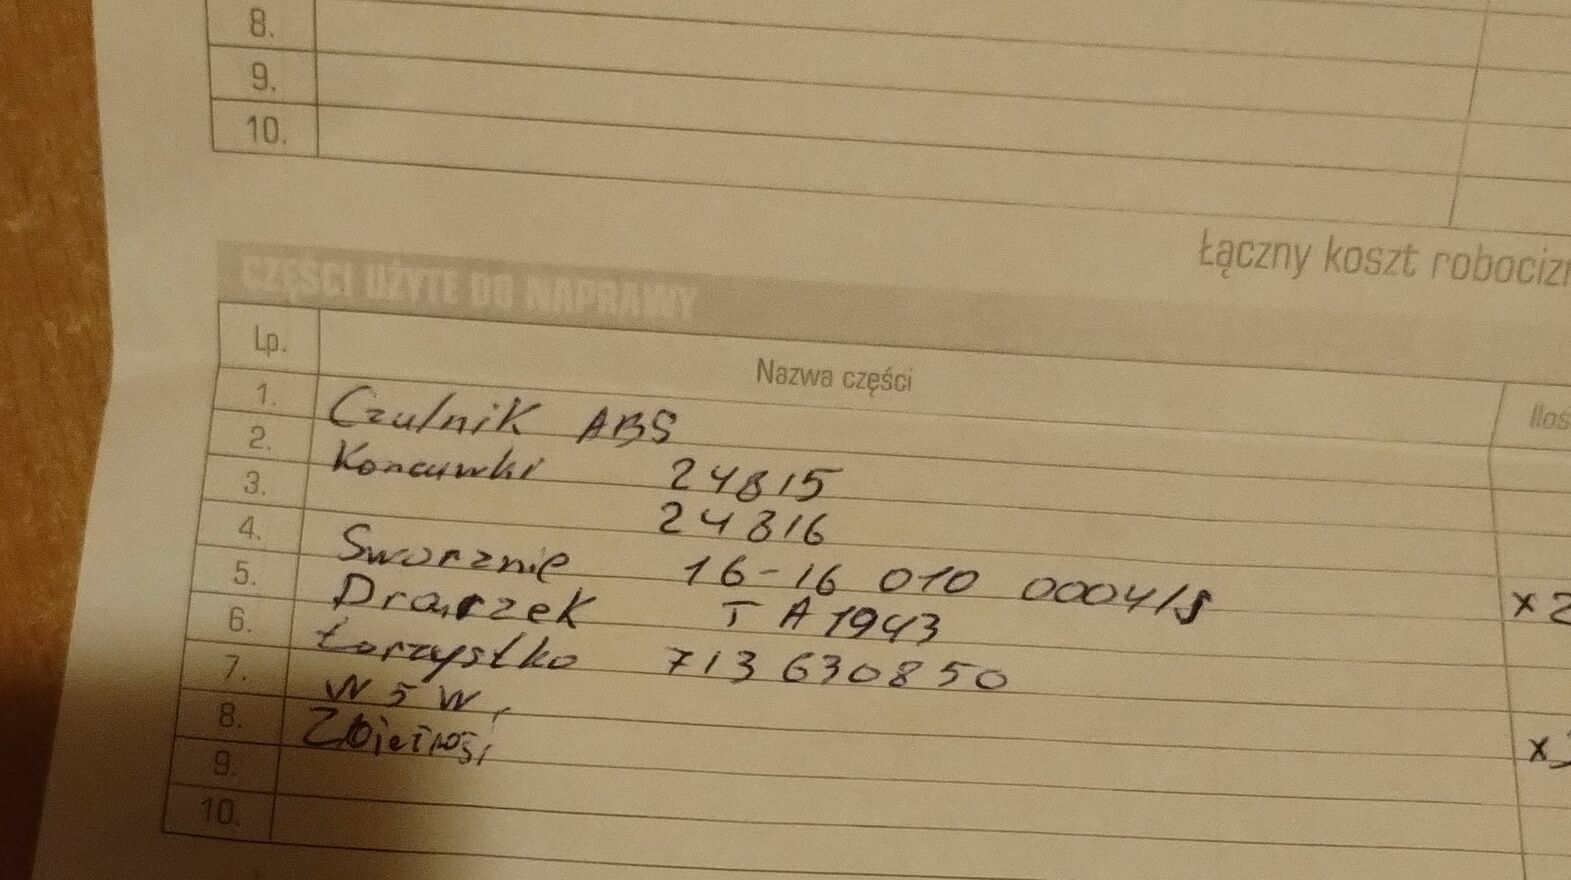 8.
9.
10.
Łączny koszt robocizn
CZĘŚCI UŻYTE DO NAPRAWY
Lp. Nazwa części Iloś
1. Czulnik ABS
2. Koncuwki 24815
3. 24816
4. Sworznie 16-16 010 0004/S x2
5. Drarzek TA1943
6. Łorzystko 713630850
7. W5W,
8. Zbierznośi
9.
10.